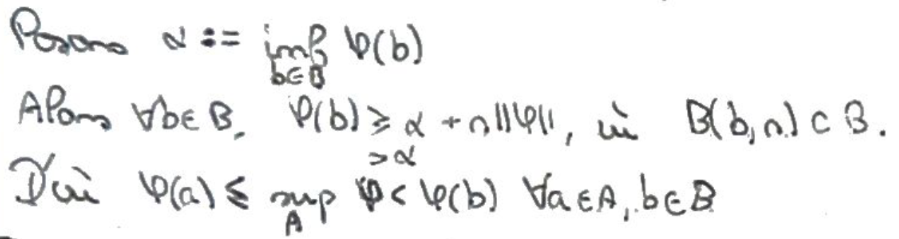 Posons α := inf_{b∈B} φ(b)
Alors ∀b∈B, φ(b) ≥ α + r||φ||, si B(b,r) ⊂ B.
>α
D'où φ(a) ≤ sup_A φ < φ(b) ∀a∈A, b∈B